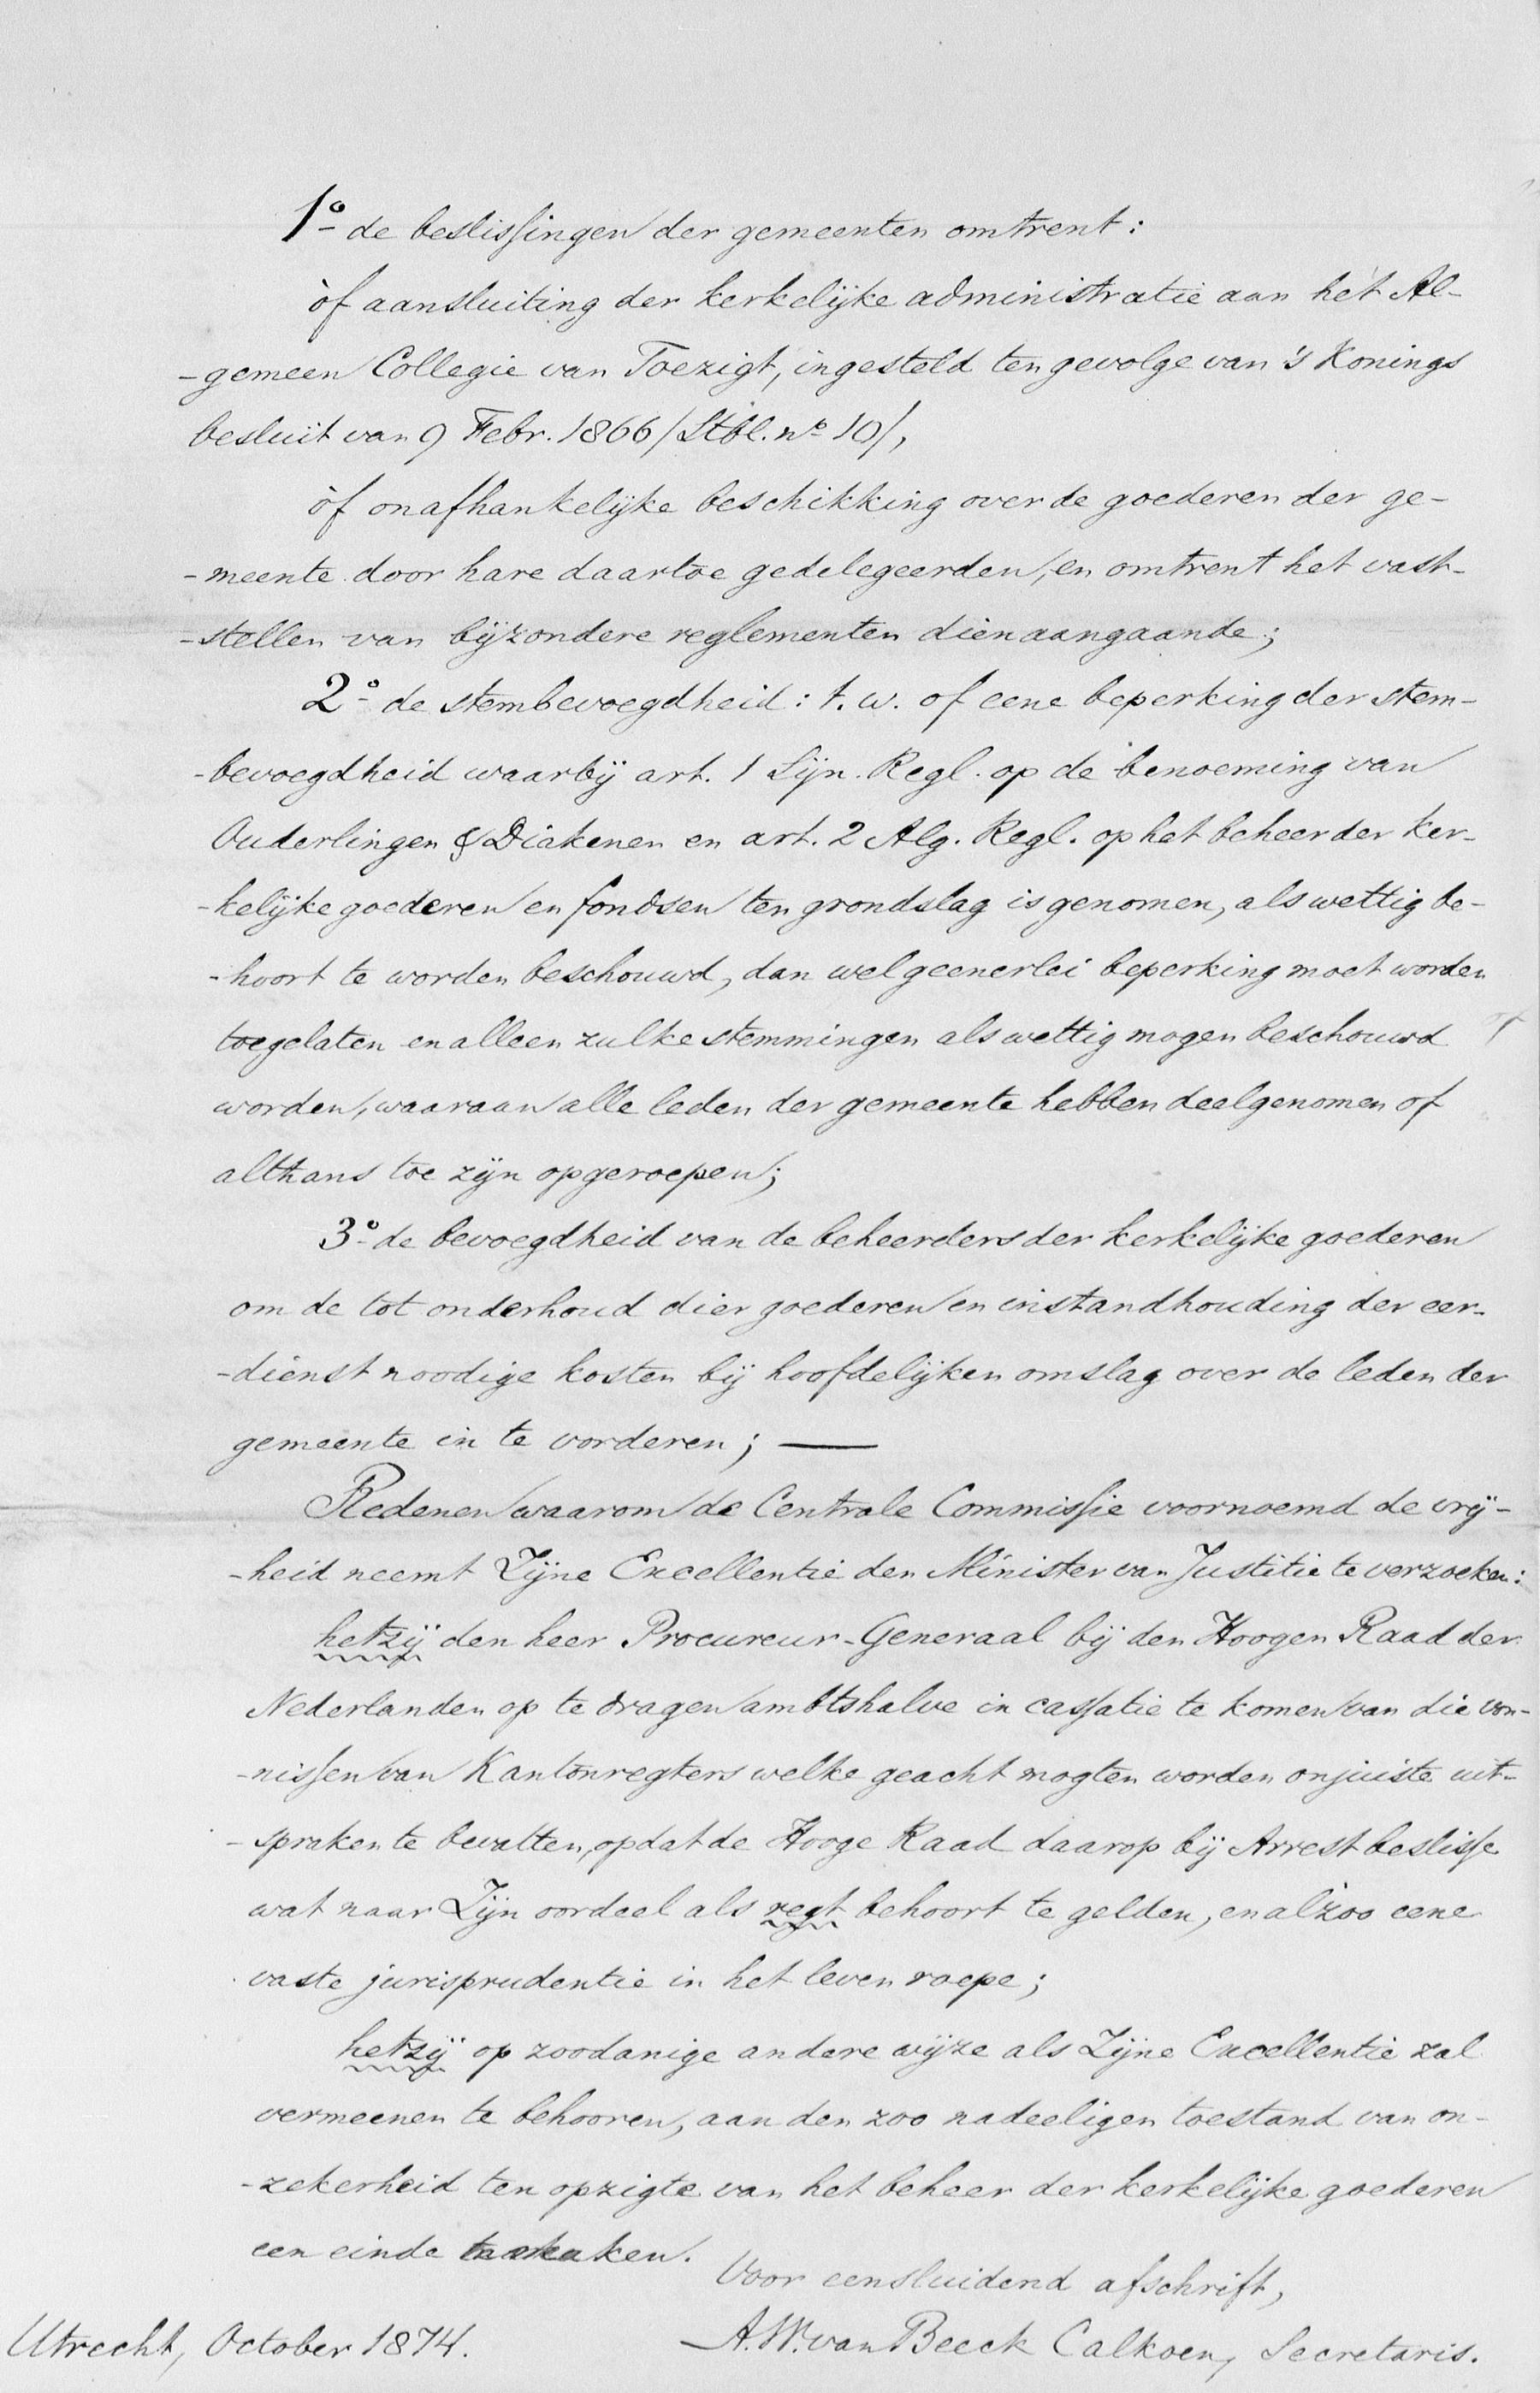 1º de beslissingen der gemeenten omtrent:
òf aansluiting der kerkelijke administratie aan het Al-
-gemeen Collegie van Toezigt, ingesteld ten gevolge van 's Konings
besluit van 9 Febr. 1866 /Stbl. nº 10/,
òf onafhankelijke beschikking over de goederen der ge-
-meente door hare daartoe gedelegeerden, en omtrent het vast-
-stellen van bijzondere reglementen dienaangaande;
2º de stembevoegdheid: t.w. of eene beperking der stem-
-bevoegdheid waarbij art. 1 Sijn. Regl. op de benoeming van
Ouderlingen & Diakenen en art. 2 Alg. Regl. op het beheer der ker-
-kelijke goederen en fondsen ten grondslag is genomen, als wettig be-
-hoort te worden beschouwd, dan wel geenerlei beperking moet worden
toegelaten en alleen zulke stemmingen als wettig mogen beschouwd
worden, waaraan alle leden der gemeente hebben deelgenomen of
althans toe zijn opgeroepen;
3º de bevoegdheid van de beheerders der kerkelijke goederen
om de tot onderhoud dier goederen en instandhouding der eer-
-dienst noodige kosten bij hoofdelijken omslag over de leden der
gemeente in te vorderen; —
Redenen waarom de Centrale Commissie voornoemd de vrij-
-heid neemt Zijne Excellentie den Minister van Justitie te verzoeken:
hetzij den heer Procureur-Generaal bij den Hoogen Raad der
Nederlanden op te dragen ambtshalve in cassatie te komen van die von-
-nissen van Kantonregters welke geacht mogten worden onjuiste uit-
-spraken te bevatten, opdat de Hooge Raad daarop bij Arrest beslisse
wat naar Zijn oordeel als regt behoort te gelden, en alzoo eene
vaste jurisprudentie in het leven roepe;
hetzij op zoodanige andere wijze als Zijne Excellentie zal
vermeenen te behooren, aan den zoo nadeeligen toestand van on-
-zekerheid ten opzigte van het beheer der kerkelijke goederen
een einde te maken.
Voor eensluidend afschrift,
Utrecht, October 1874. A.W. van Beeck Calkoen, Secretaris.